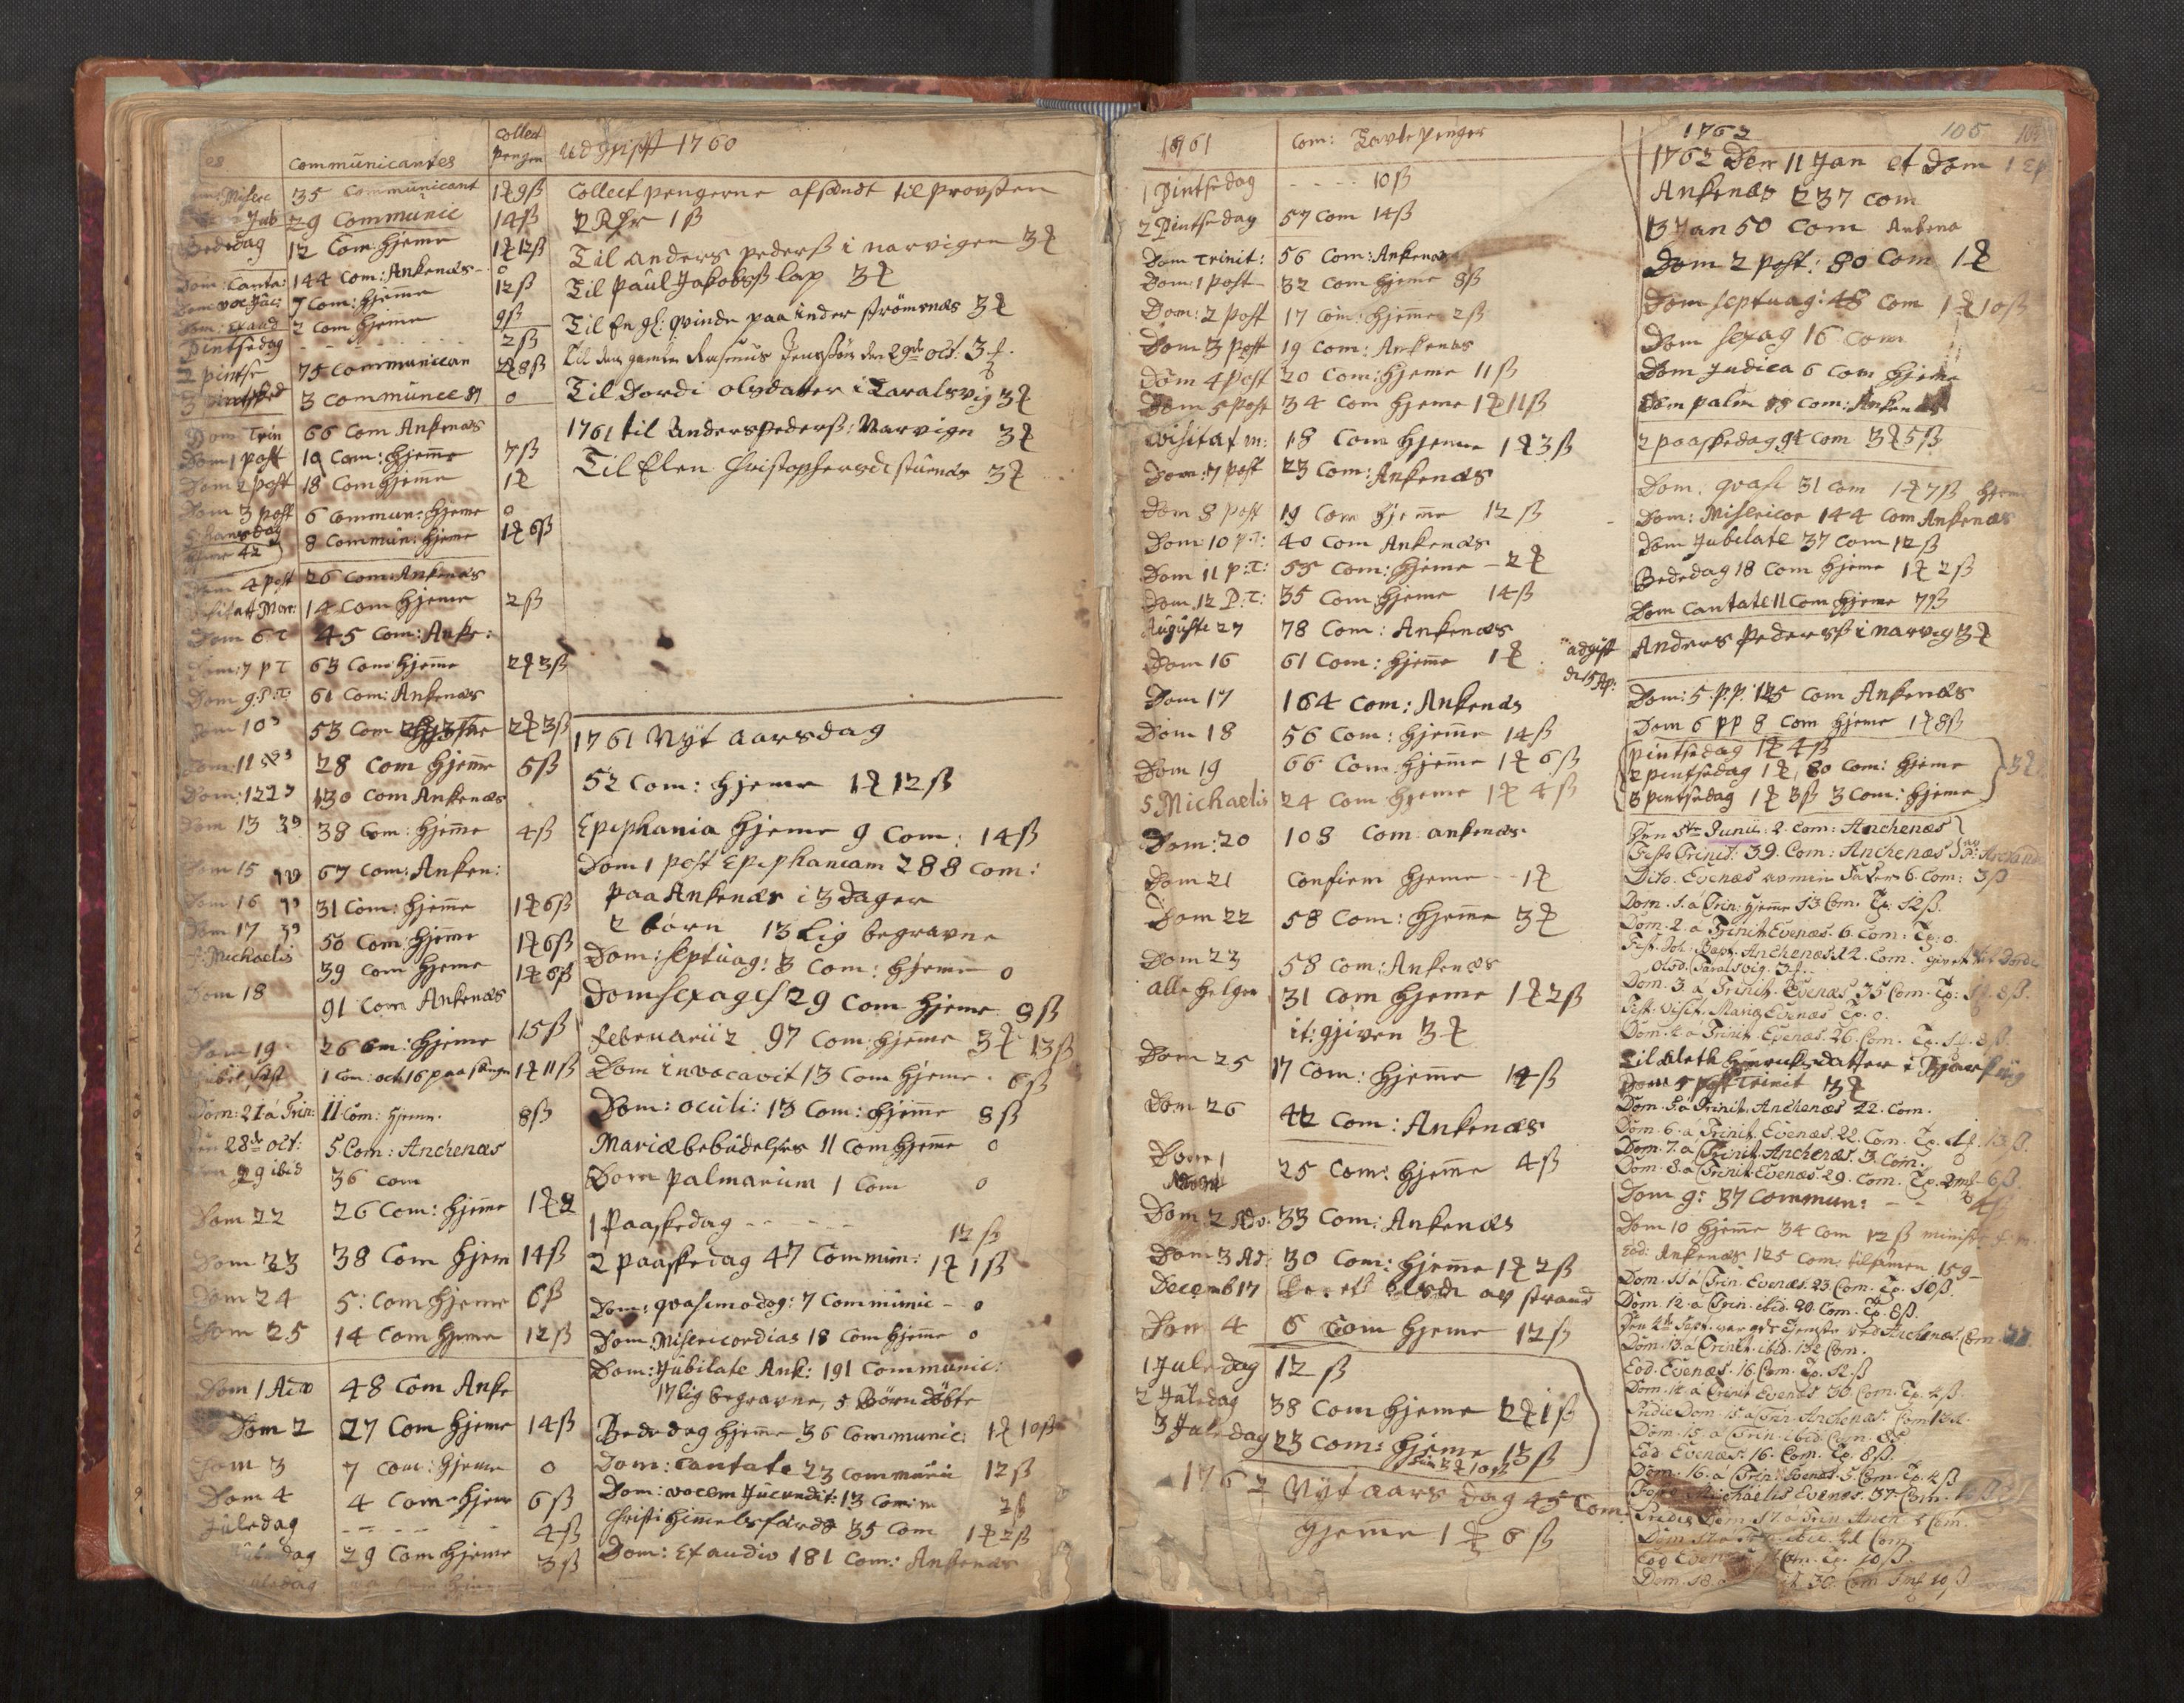 communicantes
Collect pengen
Udgifft 1760
Misere 35 Communicant 1 ꝥ 9 ß
Jub 29 Communic 14 ß
Bededag 12 Com: hjeme 1 ꝥ 12 ß
Dom: Canta: 144 Com: Ankenæs - 0
Dom voc Juc: 7 Com: hjem̃e 12 ß
Dom: Exaud 2 Com hjeme 9 ß
Pintsedag - - - 2 ß
2 pintse 75 Communican 2 ꝥ 8 ß
3 3 0
Dom Trin 66 Com Ankenæs
Dom 1 post 10 Com: hjem̃e 7 ß
Dom 2 post 18 Com hjem̃e 1 ꝥ
Dom 3 post 6 Commun: hjeme 0
8 Commun: hjeme 1 ꝥ 6 ß
Dom 4 post 26 Com: Ankenæs
14 Com hjeme 2 ß
Dom 6 T 45 Com: Anke:
Dom: 7 p T 63 Com hjem̃e 2 ꝥ 3 ß
Dom 9 P: T: 61 Com: Ankenæs
Dom 10 53 Com 2 ꝥ 3 ß
Dom: 11 28 Com hjem̃e 5 ß
Dom: 12 130 Com Ankenæs
Dom 13 38 Com: hjem̃e 4 ß
Dom 15 67 Com: Anken:
Dom 16 31 Com: hjem̃e 1 ꝥ 6 ß
Dom 17 50 Com: hjem̃e 1 ꝥ 6 ß
Michaelis 39 Com hjeme 1 ꝥ 6 ß
Dom 18 91 Com Ankenæs
Dom 19 26 Com: hjeme 15 ß
1 Com: och 16 paa 1 ꝥ 11 ß
Dom: 21 a Trin: 11 Com: hjem̃e. 8 ß
Den 28de oct: 5. Com: Anchenæs
29 ibid 36 com
Dom 22 26 Com: hjem̃e 1 ꝥ 2
Dom 23 38 Com hjem 14 ß
Dom 24 5: Com hjeme 6 ß
Dom 25 14 Com hjeme 12 ß
Dom 1 Adv 48 Com Anke
Dom 2 27 Com hjeme 14 ß
Dom 3 7 Com: hjeme 0
Dom 4 4 Com hjem 6 ß
Juledag - - - 4 ß
Juledag 29 Com hjeme 3 ß
Collect pengerne afsændt til provsten
2 Rhr 1 ß
Til anders pederß i narvigen 3 ꝥ
Til Paul Jakobsß lap 3 ꝥ
Til En gl: qvinde paa inder strömsnæs 3 ꝥ
Til den gamle Rasmus den 29de oct. 3 ꝥ.
Til Dordi olsdatter i Taralsvig 3 ꝥ
1761 til Anderspederß: Narvigen 3 ꝥ
Til Elen 3 ꝥ
1761 Nyt aarsdag
52 Com: hjeme 1 ꝥ 12 ß
Epiphania hjeme 9 Com: 14 ß
Dom 1 post Epiphaniam 288 Com:
paa Ankenæs i 3 dager
2 börn 13 Lig begravne
Dom: septuag: 3 Com: hjem̃e 0
Dom sexages 29 Com hjeme 8 ß
februarii 2 97 Com: hjem̃e 3 ꝥ 13 ß
Dom invocavit 13 Com hjeme. 6 ß
Dom: oculi: 13 Com: hjem̃e 8 ß
Mariæ bebudelses 11 Com hjem̃e 0
Dom palmarum 1 Com 0
1 Paaskedag - - - 12 ß
2 paaskedag 47 Commun: 1 ꝥ 1 ß
Dom: qvasimodog: 7 Communic - 0
Dom Misericordias 18 Com hjem̃e 0
Dom: Jubilate Ank: 191 Communic:
17 lig begravne, 5 Börn döbte
Bededag hjem̃e 36 Communic: 1 ꝥ 10 ß
Dom: Cantate 23 Communic 12 ß
Dom: vocem Jucundit: 13 Com̃ 2 ß
Christi himelsfærds 35 Com 1 ꝥ 2 ß
Dom: Exaudio 181 Com: Ankenæs
1761 Com: Tavlepenger
1 Pintsedag - - - - 10 ß
2 Pintsedag 57 Com 14 ß
Dom Trinit: 56 Com: Ankenæs
Dom: 1 Post 32 Com hjeme 8 ß
Dom: 2 post 17 Com: hjem̃e 2 ß
Dom 3 post 19 Com: Ankenæs
Dom 4 post 20 Com: hjeme 11 ß
Dom 5 post 34 Com hjeme 1 ꝥ 11 ß
Visitat m: 18 Com hjeme 1 ꝥ 3 ß
Dom: 7 post 23 Com: Ankenæs
Dom 8 post 19 Com hjem̃e 12 ß
Dom: 10 p T: 40 Com Ankenæs
Dom 11 p: T: 55 Com: hjeme - 2 ꝥ
Dom 12 P: T: 35 Com: hjeme 14 ß
Auguste 27 78 Com: Ankenæs
Dom 16 61 Com: hjem̃e 1 ꝥ
Dom 17 164 Com: Ankenæs
Dom 18 56 Com: hjem̃e 14 ß
Dom 19 66 Com: hjem̃e 1 ꝥ 6 ß
S. Michaelis 24 Com hjeme 1 ꝥ 4 ß
Dom: 20 108 Com ankenæs
Dom 21 Confirm hjeme - - 1 ꝥ
Dom 22 58 Com: hjem̃e 3 ꝥ
Dom 23 58 Com: Ankenæs
alle helgen 31 Com hjeme 1 ꝥ 2 ß
it: gjiven 3 ꝥ
Dom 25 17 Com: hjem̃e 14 ß
Dom 26 42 Com: Ankenæs
Dom 1 25 Com: hjem̃e 4 ß
Dom 2 Adv. 33 Com: Ankenæs
Dom 3 Ad: 30 Com: hjem̃e 1 ꝥ 2 ß
Decemb 17 av strand
Dom 4 6 Com hjeme 12 ß
1 Juledag 12 ß
2 Juledag 38 Com hjeme 2 ꝥ 1 ß
3 Juledag 23 Com: hjeme 13 ß
1762 Nyt aars dag 45 Com:
hjem̃e 1 ꝥ 6 ß
1762
105
1762 Den 11 Jan et Dom 1 Ep
Ankenæs 237 Com
13 Jan 50 Com Ankenæ
Dom 2 post: 80 Com 1 ꝥ
Dom septuag: 48 Com 1 ꝥ 10 ß
Dom sexag 16 Com
Dom Judica 6 Com hjeme
Dom palm 88 Com: Ankenæs
2 paaskedag 94 Com 3 ꝥ 5 ß
Dom. qvas 31 Com 1 ꝥ 7 ß hjem
Dom: Misericor 144 Com Ankenæs
Dom Jubilate 37 Com 12 ß
Bededag 18 Com hjeme 1 ꝥ 2 ß
Dom Cantate 11 Com hjeme 7 ß
udgift Anders pederß i narvig 3 ꝥ
Dom: 5. p. p: 125 Com Ankenæs
Dom 6 pp 8 Com hjeme 1 ꝥ 8 ß
pintsedag 1 ꝥ 4 ß
2 pintsedag 1 ꝥ, 80 Com: hjeme
3 pintsedag 1 ꝥ 3 ß 3 Com: hjeme
3 ꝥ
Den 5te Junii. 2. Com: Anchenæs
Festo Trinit: 39. Com: Anchenæs
Dito. Evenæs av min Fader 6. Com: 3 ß
Dom. 1. a Trin: hjem̃e 13 Com. Tp. 12 ß.
Dom. 2. a Trinit Evenæs. 6. Com: Tp: 0.
Fest. Joh. Bapt. Anchenæs. 12. Com. givet til Dordi
Olsd. Taralsvig. 3 ꝥ.
Dom. 3 a Trinit. Evenæs 35 Com. Tp: 1 ꝥ. 8 ß.
Fest. Visit. Mariæ Evenæs Tp. 0.
Dom. 4. a Trinit. Evenæs. 26. Com. Tp. 1 ꝥ. 8 ß.
Til Aleth Henriksdatter i
Dom 5 post Trinit 3 ꝥ
Dom. 5. a Trinit. Anchenæs 22. Com.
Dom. 6. a Trinit. Evenæs. 22. Com. Tp. 1 ꝥ. 13 ß.
Dom. 7. a Trinit. Anchenæs. 3. Com.
Dom. 8. a Trinit. Evenæs. 29. Com. Tp. 2 mk 6 ß.
Dom 9: 37 Commun: - - 4 ß
Dom 10 hjem̃e 34 Com 12 ß
Eod: Ankenæs 125 Com. tilsamen 159
Dom. 11 a Trin. Evenæs. 23. Com. Tp. 10 ß.
Dom. 12. a Trin. ibid. 20. Com. Tp. 8 ß.
Dom. 13. a Trinit. ibid. 132 Com.
Eod. Evenæs. 16. Com. Tp. 12 ß
Dom. 14. a Trinit Evenæs 30. Com. Tp. 4 ß.
Dom. 15. a Trin. ibid. Com. 85
Eod. Evenæs. 16. Com. Tp. 8 ß.
Dom. 16. a Trin. Evenæs. 5. Com. Tp. 4 ß
Festo Michaelis Evenæs. 37. Com.
Dom. 18. 30. Com 1 mk 10 ß